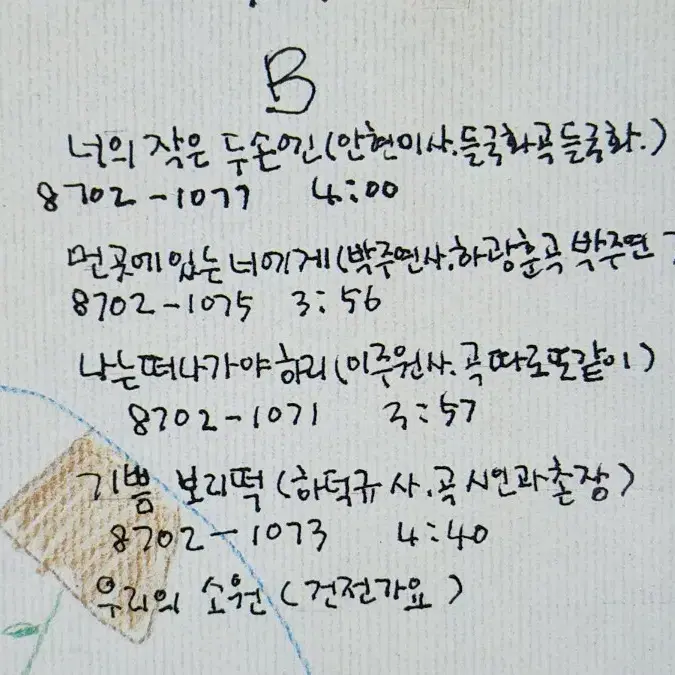 B
너의 작은 두손엔(안현미사.들국화곡 들국화.)
8702-1077 4:00
먼곳에 있는 너에게(박주연사.하광훈곡 박주연
8702-1075 3:56
나는 떠나가야 하리(이주원사.곡 따로또같이)
8702-1071 3:57
기쁨 보리떡(하덕규 사.곡 시인과촌장)
8702-1073 4:40
우리의 소원(건전가요)